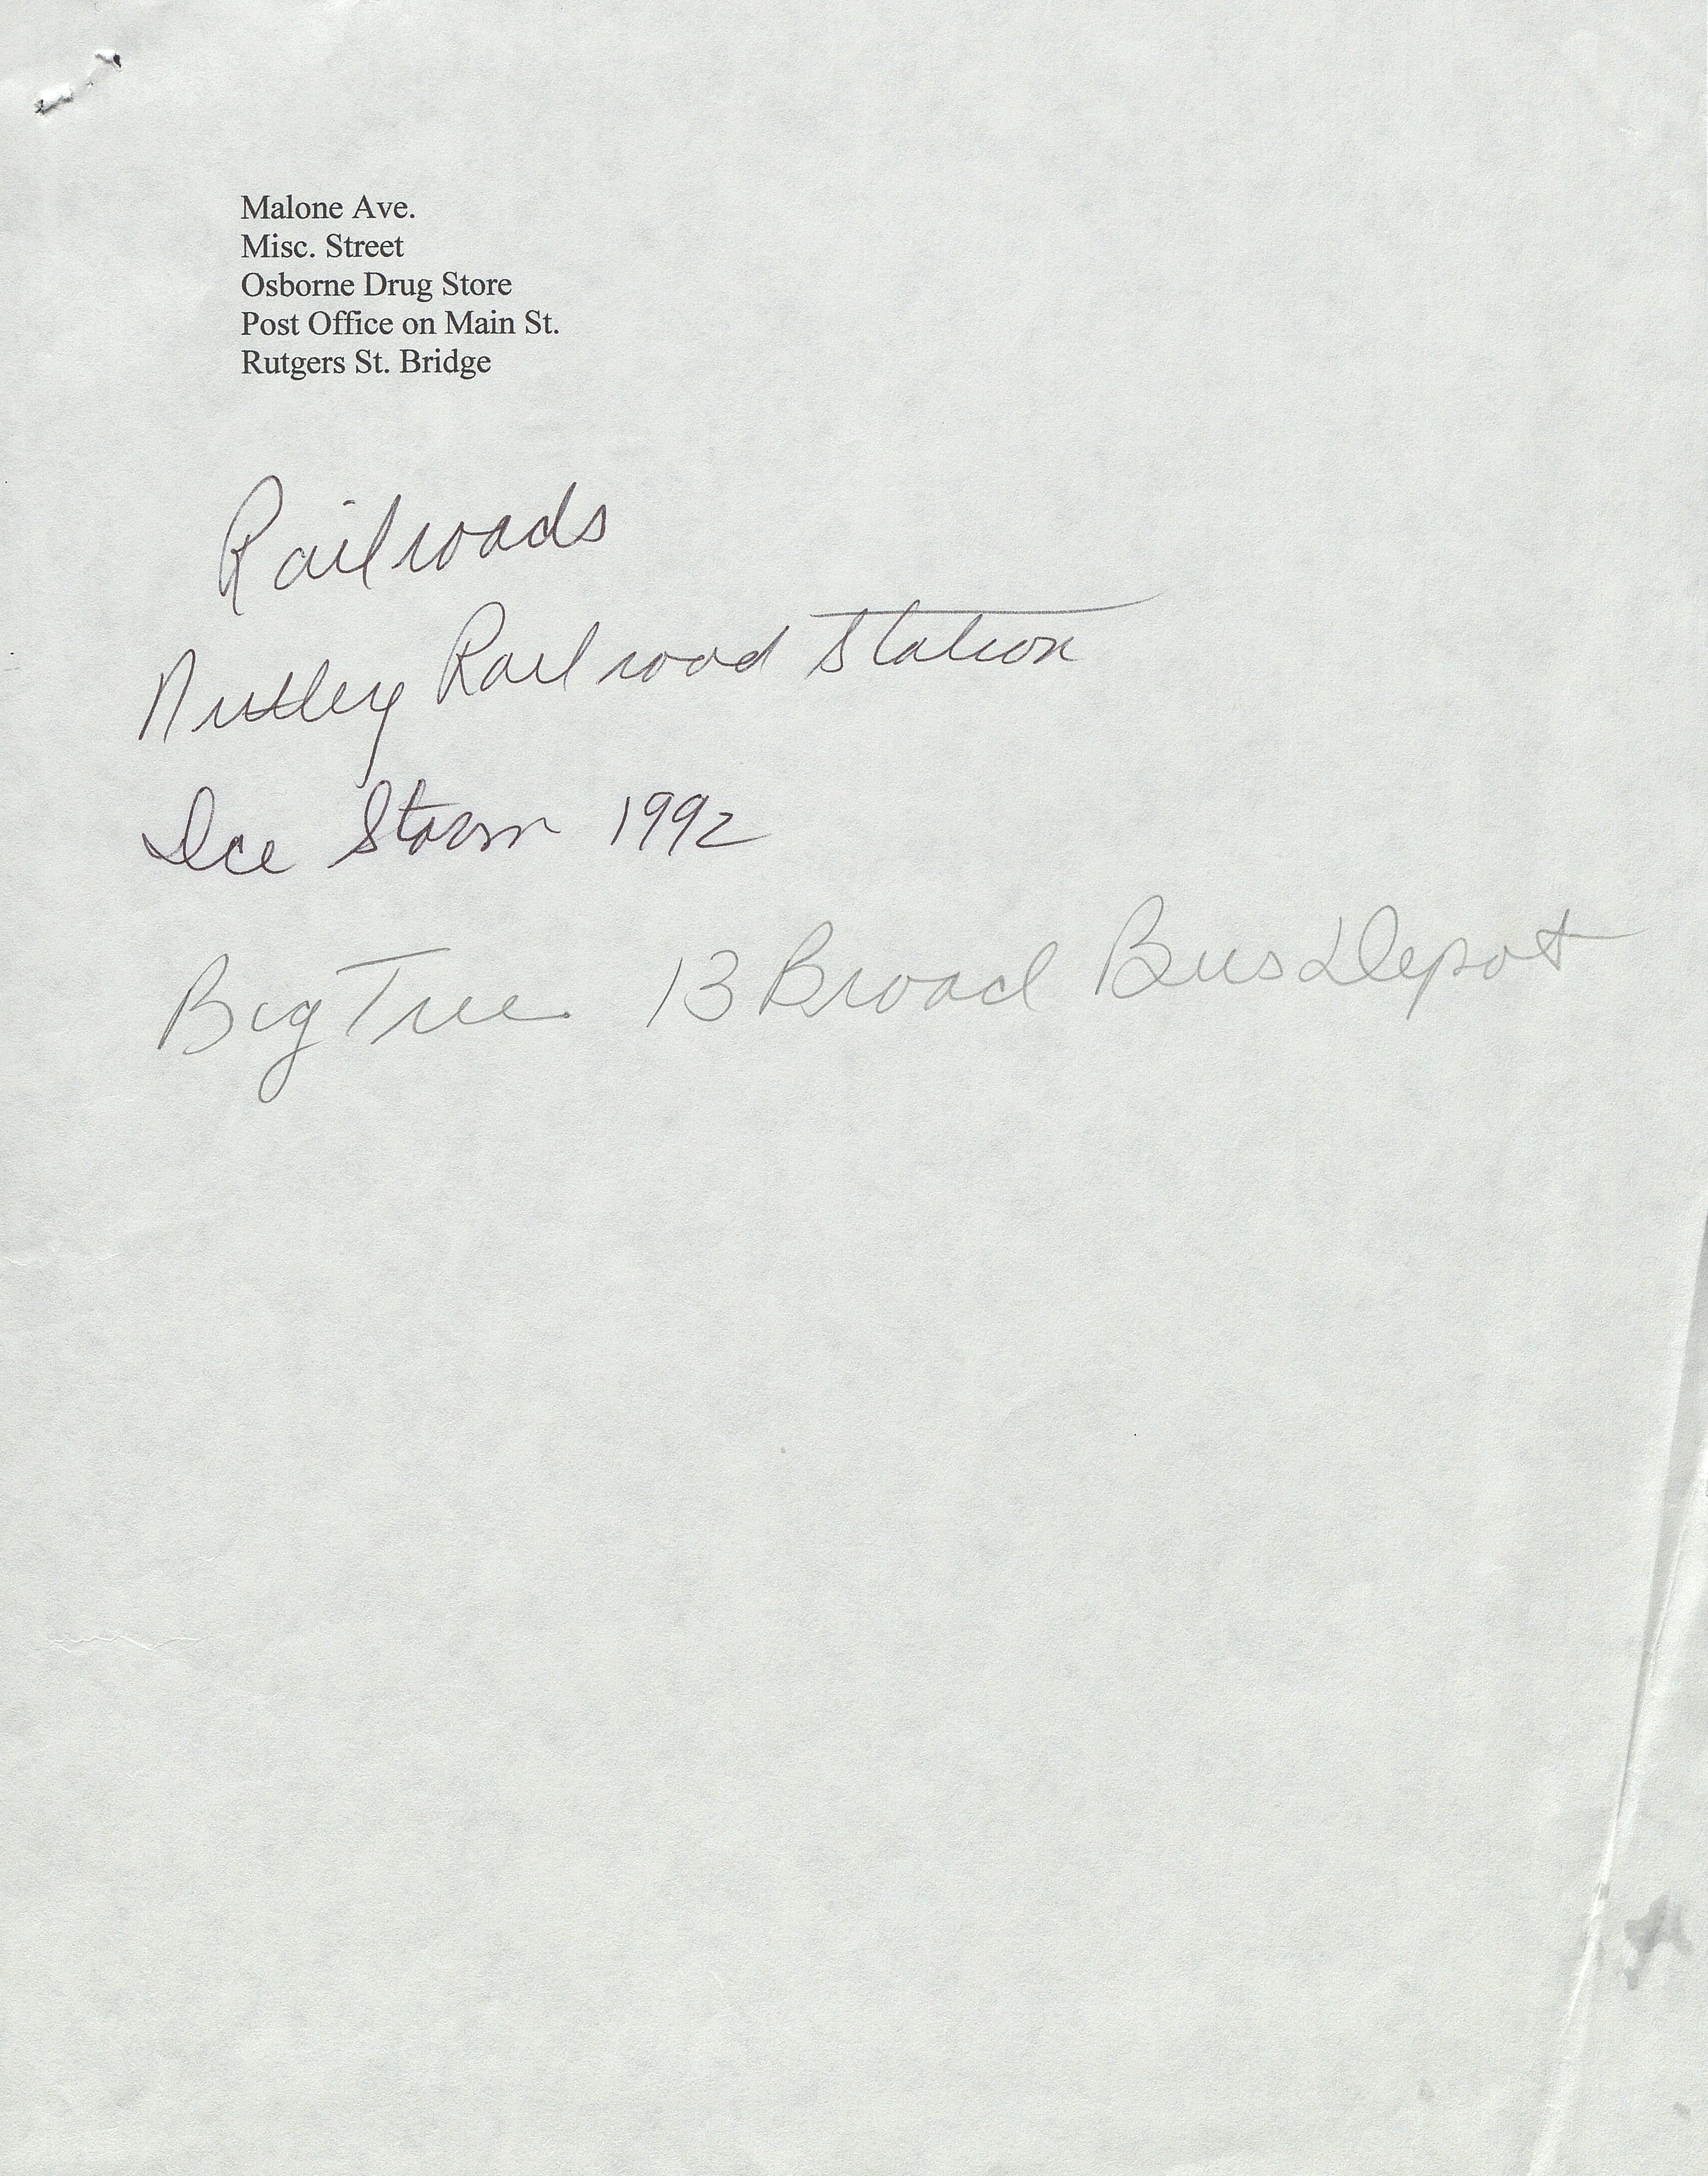 Malone Ave.
Misc. Street
Osborne Drug Store
Post Office on Main St.
Rutgers St. Bridge
Railroads
Nutley Railroad Station
Ice Storm 1992
Big Tree 13 Broad Bus Depot